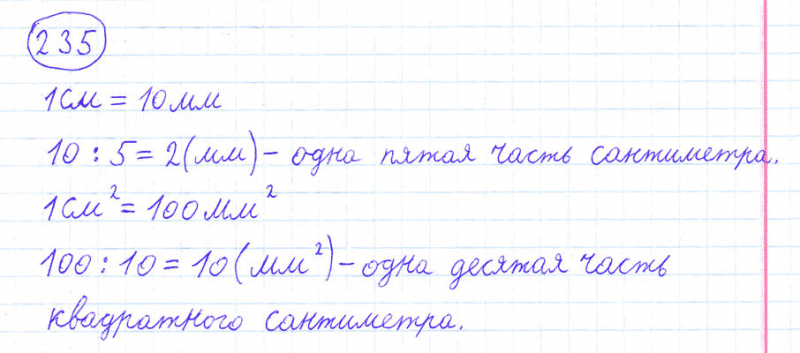 235
1см = 10мм
10 : 5 = 2(мм) - одна пятая часть сантиметра.
1см² = 100мм²
100 : 10 = 10(мм²) - одна десятая часть
квадратного сантиметра.